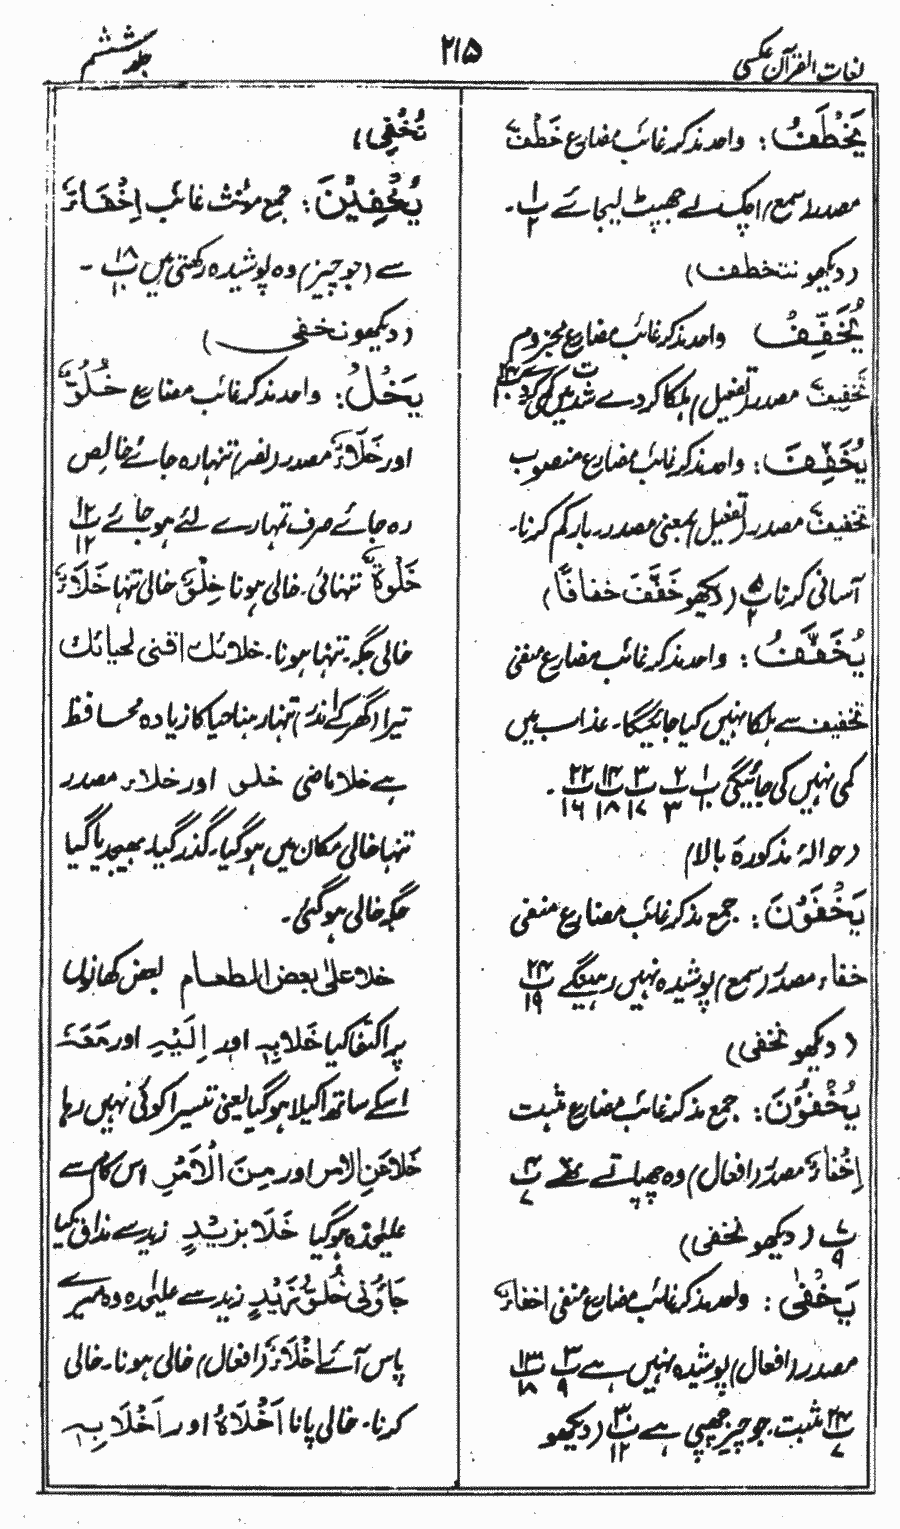 لغات القرآن عکسی
۲۱۵
جلد ششم
يَخْطَفُ: واحد مذکر غائب مضارع خَطْفٌ
مصدر (سمع) اچک لے جھپٹ لیجائے پ۱ ۲۔
(دیکھو نتخطف)
يُخَفِّفُ واحد مذکر غائب مضارع مجزوم
تَخْفِيفٌ مصدر (تفعیل) ہلکا کر دے شدت میں کمی کر دے
يُخَفِّفَ: واحد مذکر غائب مضارع منصوب
تخفیفٌ مصدر۔ (تفعیل) بمعنی مصدر۔ بار کم کرنا۔
آسانی کرنا پ۵ ۲ (دیکھو خَفَّفَ خفافًا)
يُخَفَّفُ: واحد مذکر غائب مضارع منفی
تخفیف سے ہلکا نہیں کیا جائیگا۔ عذاب میں
کمی نہیں کی جائیگی پ۱ ۱۰ پ۲ ۳ پ۳ ۱۷ پ۱۴ ۱۸ پ۲۲ ۱۶۔
(حوالۂ مذکورہ بالا)
يَخْفَوْنَ: جمع مذکر غائب مضارع منفی
خفاء مصدر (سمع) پوشیدہ نہیں رہینگے پ۲۴ ۱۹
(دیکھو نخفی)
يُخْفُوْنَ: جمع مذکر غائب مضارع مثبت
اِخْفَاءٌ مصدر (افعال) وہ چھپاتے تھے پ۴ ۷
پ۷ ۹ (دیکھو نخفی)
يَخْفٰى: واحد مذکر غائب مضارع منفی اخفاءٌ
مصدر (افعال) پوشیدہ نہیں ہے پ۳ ۹ پ۱۳ ۱۸
پ۲۴ ۷ مثبت۔ جو چیز چھپی ہے پ۳۰ ۱۲ (دیکھو
نُخْفِي)
يُخْفِيْنَ: جمع مؤنث غائب اِخْفَاءٌ
سے (جو چیز) وہ پوشیدہ رکھتی ہیں پ۱۸ ۱۰۔
(دیکھو نخفی)
يَخْلُ: واحد مذکر غائب مضارع خُلُوٌّ
اور خَلَاءٌ مصدر (نصر) تنہا رہ جائے خالص
رہ جائے صرف تمہارے لئے ہو جائے پ۱۲ ۱۲
خَلْوَةٌ تنہائی۔ خالی ہونا خِلْوٌ خالی تنہا خَلَاءٌ
خالی جگہ۔ تنہا ہونا۔ خلائك اقنى لحيائك
تیرا (گھر کے اندر) تنہا رہنا حیا کا زیادہ محافظ
ہے خلا ماضی خلو اور خلاء مصدر
تنہا خالی مکان میں ہو گیا۔ گذر گیا۔ بھیجدیا گیا
جگہ خالی ہو گئی۔
خلا على بعض الطعام بعض کھانوں
پر اکتفا کیا خَلَا بِہٖ اور اِلَيْہِ اور مَعَہٗ
اسکے ساتھ اکیلا ہو گیا یعنی تیسرا کوئی نہیں رہا
خَلَا عَنِ الامر اور مِنَ الْاَمْرِ اس کام سے
علیٰحدہ ہو گیا خَلَا بزیدٍ زید سے مذاق کیا
جَاؤُنِى خُلُوَّ زَيْدٍ زید سے علیٰحدہ وہ میرے
پاس آئے اِخْلَاءٌ (افعال) خالی ہونا۔ خالی
کرنا۔ خالی پانا اَخْلَاہٗ اور اَخْلَا بِہٖ